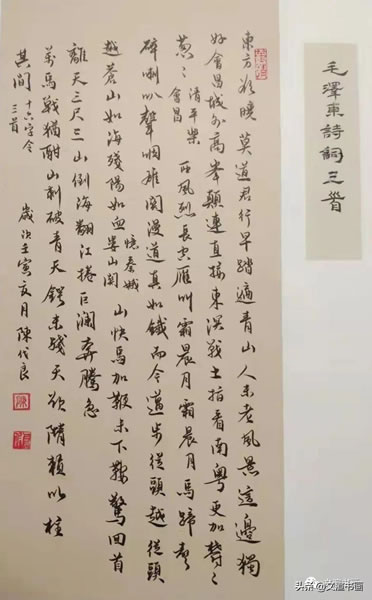 毛澤東詩詞三首
東方欲曉莫道君行早踏遍青山人未老風景這邊獨
好會昌城外高峯顛連直接東溟戰士指看南粵更加鬱々
蔥々 清平樂 會昌 西風烈長空雁叫霜晨月霜晨月馬蹄聲
碎喇叭聲咽雄關漫道真如鐵而今邁步從頭越從頭
越蒼山如海殘陽如血 憶秦娥 婁山關 山快馬加鞭未下鞍驚回首
離天三尺三山倒海翻江捲巨瀾奔騰急
萬馬戰猶酣山刺破青天鍔未殘天欲墮賴以柱
其間 十六字令 三首 歲次壬寅亥月陳代良
头条